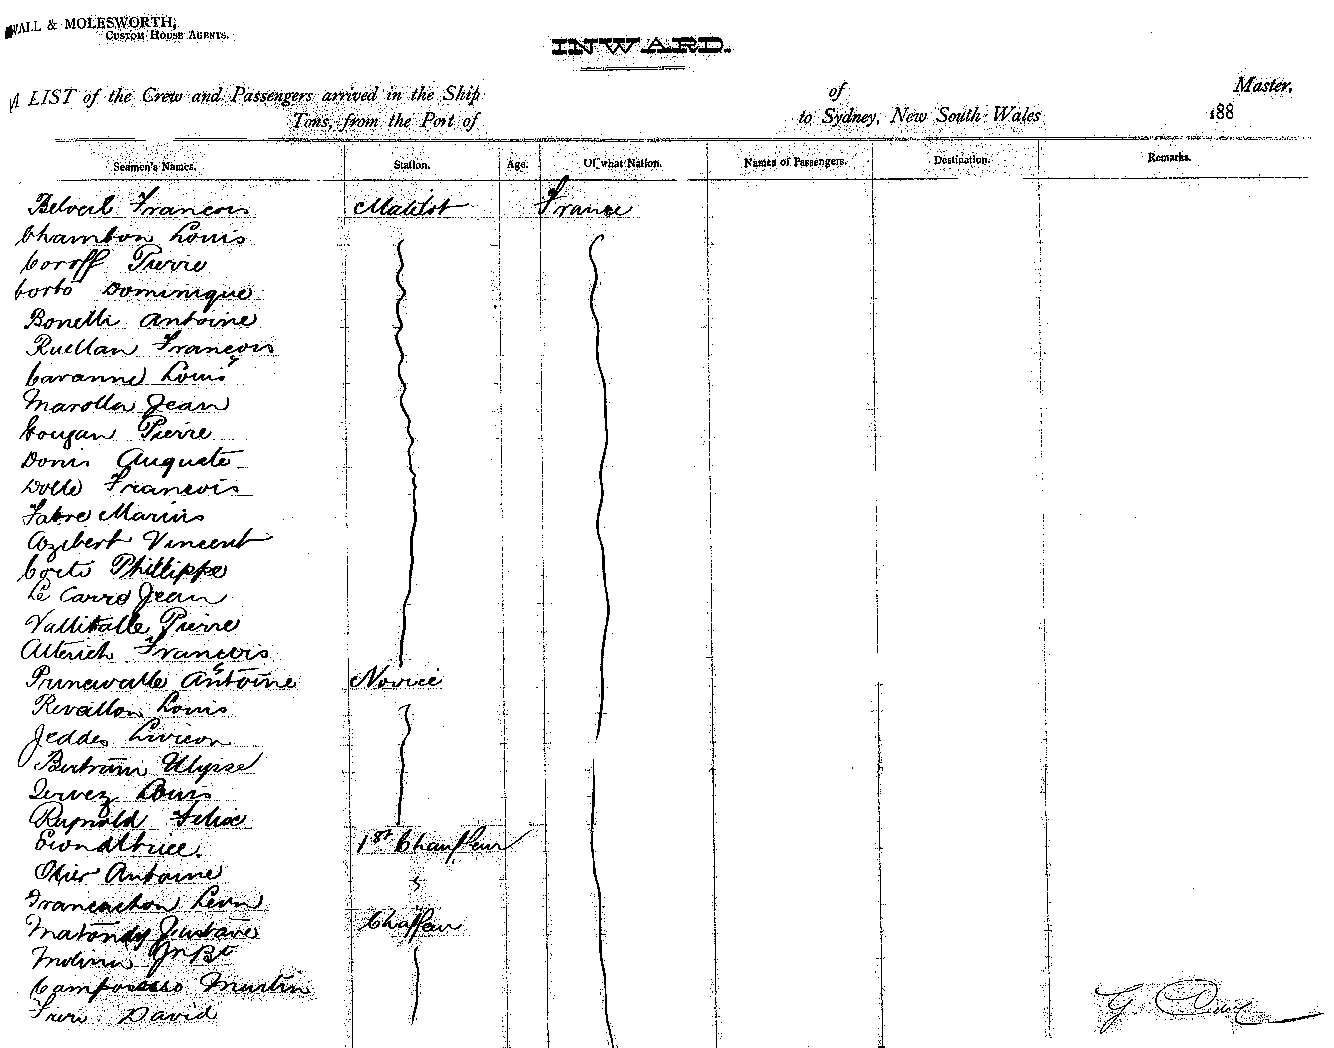 WALL & MOLESWORTH,
CUSTOM HOUSE AGENTS.
INWARD.
A LIST of the Crew and Passengers arrived in the Ship of Master,
Tons, from the Port of to Sydney, New South Wales 188
Seamen's Names. Station. Age. Of what Nation. Names of Passengers. Destination. Remarks.
Francois Matelot France
Chambon Louis
Coroff Pierre
Corto Dominique
Bonelli Antoine
Ruellan Francois
Caranne Louis
Marolla Jean
Goujan Pierre
Donis Auguste
Dolle Francois
Fabre Marius
Azibert Vincent
Corti Phillippe
Le Carro Jean
Vallitalle Pierre
Alterich Francois
Antoine Novice
Revallon Louis
Jeddes
Bertrani Ulysse
Louis
Raynold Felix
1st Chauffeur
Olier Antoine
Leon
Gustave Chaffeur
Molina Jn Bt
Martin
David
G.